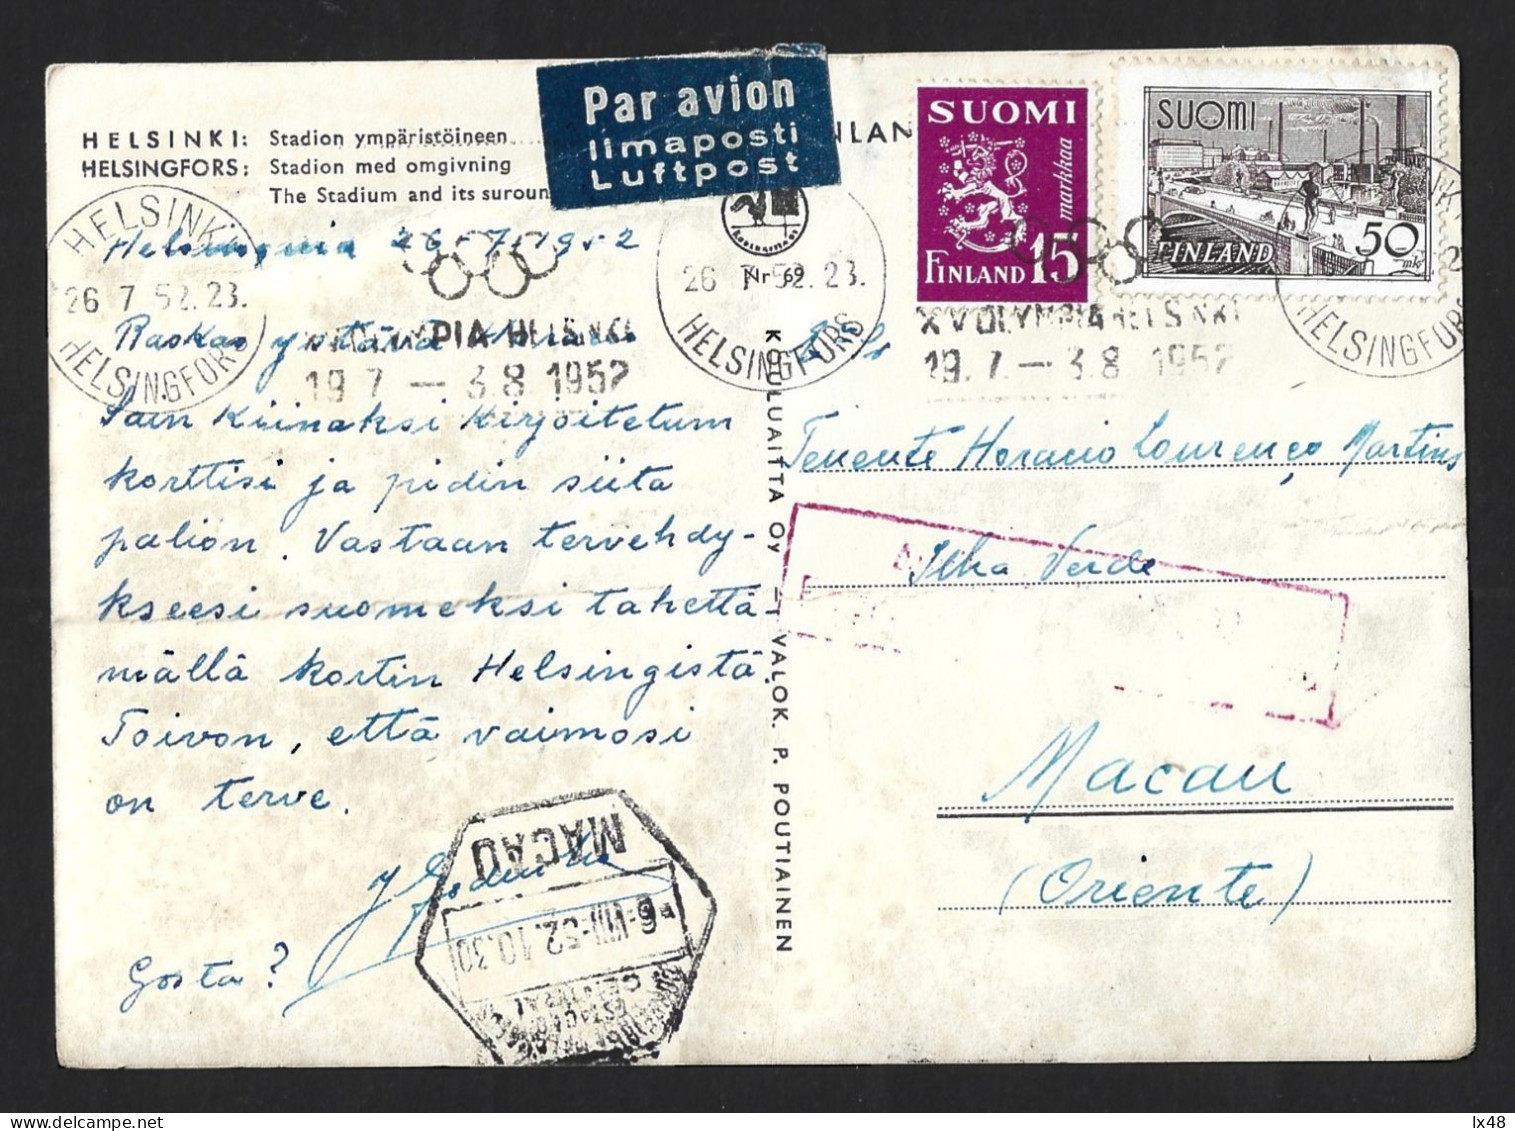 HELSINKI: Stadion ympäristöineen
HELSINGFORS: Stadion med omgivning
The Stadium and its suroun
Par avion
Ilmaposti
Luftpost
NLAN
SUOMI
markkaa
FINLAND 15
SUOMI
FINLAND 50 mk
HELSINKI
26 7 52.23.
HELSINGFORS
HELSINKI
26 7 52.23.
HELSINGFORS
Nr 69
XV OLYMPIA HELSINKI
19.7. — 3.8 1952
XV OLYMPIA HELSINKI
19.7. — 3.8 1952
HELSINGFORS
26-7-1952
Raskas ystävä
Sain Kiinaksi Kirjoitetum
korttisi ja pidin siita
palion. Vastaan tervehdy-
kseesi suomeksi tahettä-
mällä kortin Helsingistä.
Toivon, että vaimosi
on terve.
Gosta?
KOULUAITTA Oy – VALOK. P. POUTIAINEN
Tenente Horacio Lourenço Martins
Ilha Verde
Macau
(Oriente)
MACAU
6-VIII-52.10.30
ESTAÇÃO
CENTRAL
lx48